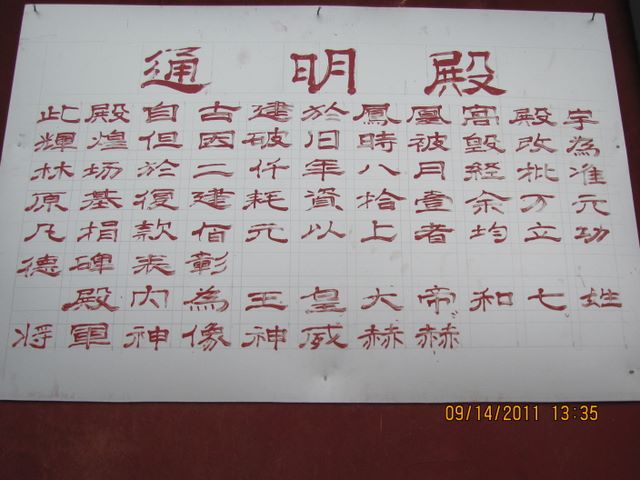 通明殿
此殿自古建於鳳凰宮殿宇
輝煌但因破旧時被毁改為
林场於二仟年八月經批准
原基復建耗資拾壹余万元
凡捐款佰元以上者均立功
德碑表彰
殿内為王皇大帝和七姓
将軍神像神威赫赫
09/14/2011 13:35